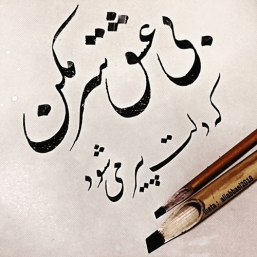 بی عشق سر مکن
که دلت پیر می شود